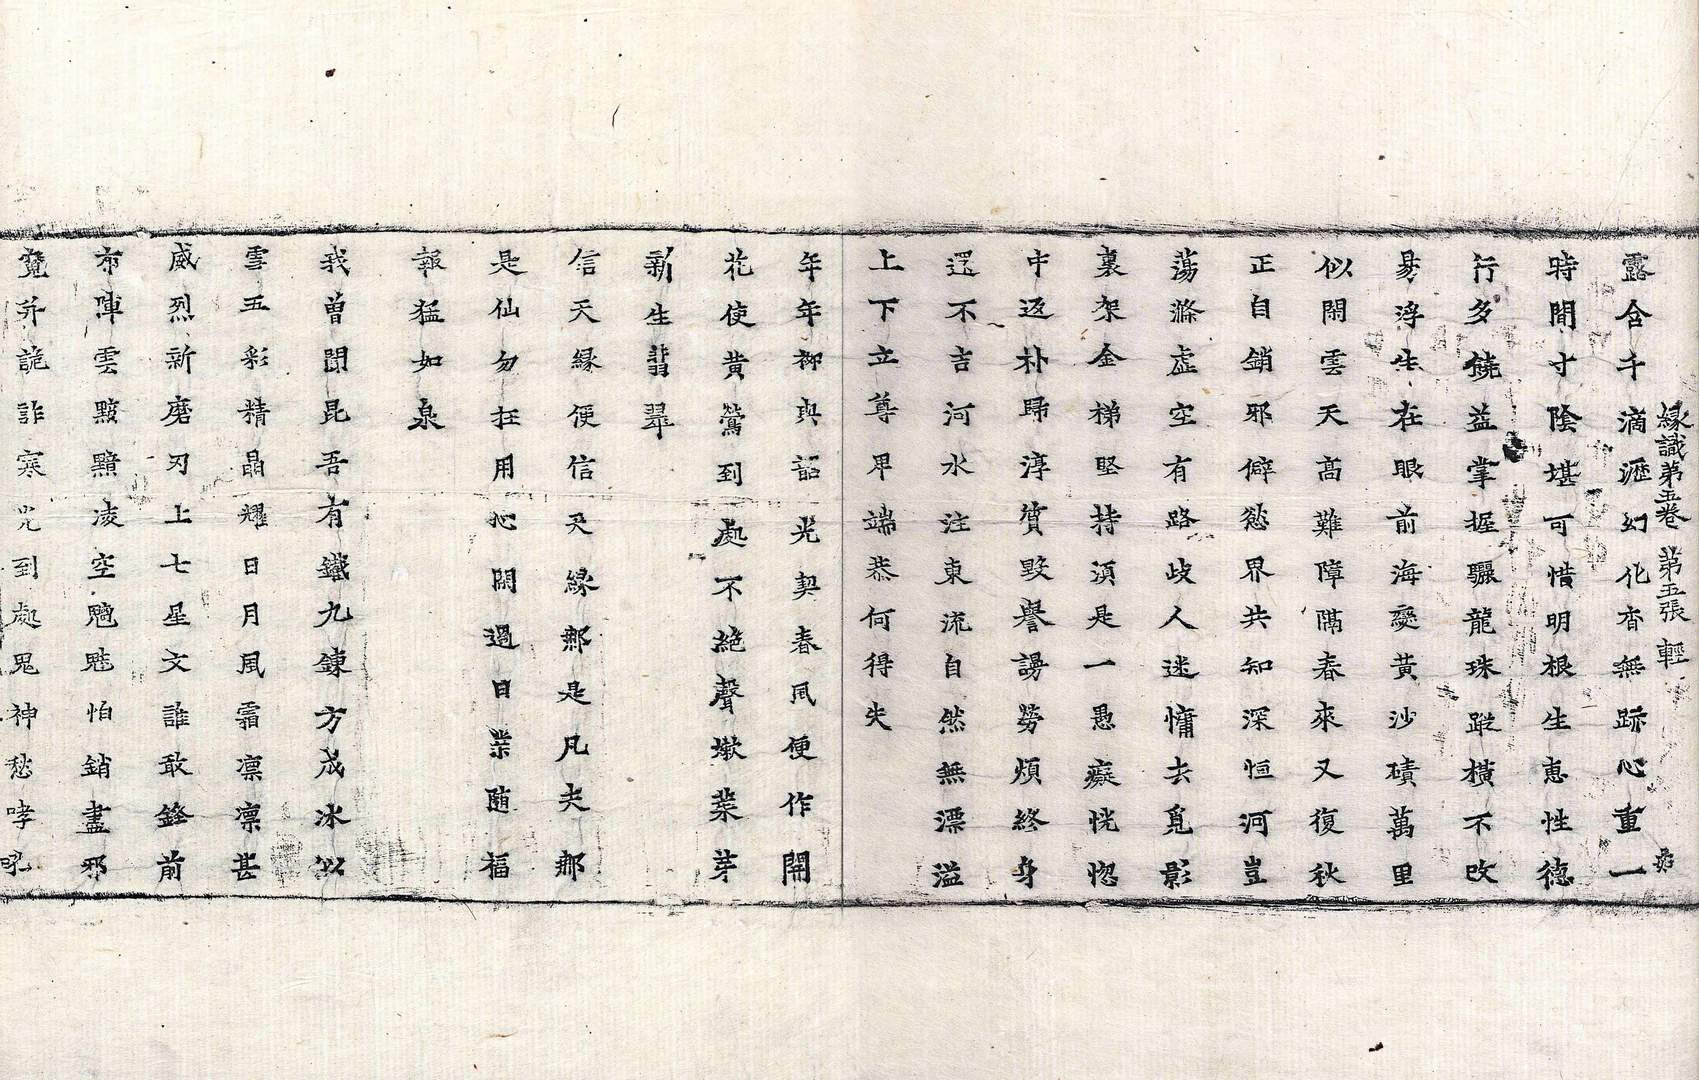 緣識第五卷 第五張 輕
露含千滴瀝幻化杳無跡心重一
時間寸陰堪可惜明根生惠性德
行多饒益掌握驪龍珠蹤橫不改
易浮生在眼前海變黃沙磧萬里
似閑雲天高難障隔春來又復秋
正自銷邪僻慾界共知深恒河豈
蕩滌虛空有路歧人迷慵去覓影
裏架金梯堅持須是一愚癡恍惚
中返朴歸淳質毀譽謗勞煩終身
還不吉河水注東流自然無漂溢
上下立尊卑端恭何得失
年年柳與韶光契春風便作開
花使黃鶯到處不絕聲嫩葉芽
新生翡翠
信天緣便信天緣那是凡夫那
是仙勿狂用心閑過日業隨福
報猛如泉
我曾聞昆吾有鐵九鍊方成冰似
雪五彩精晶耀日月風霜凛凛甚
威烈新磨刃上七星文誰敢鋒前
布陣雲黤黯凌空魍魎怕銷盡邪
魔并詭詐寒光到處鬼神愁哮吼